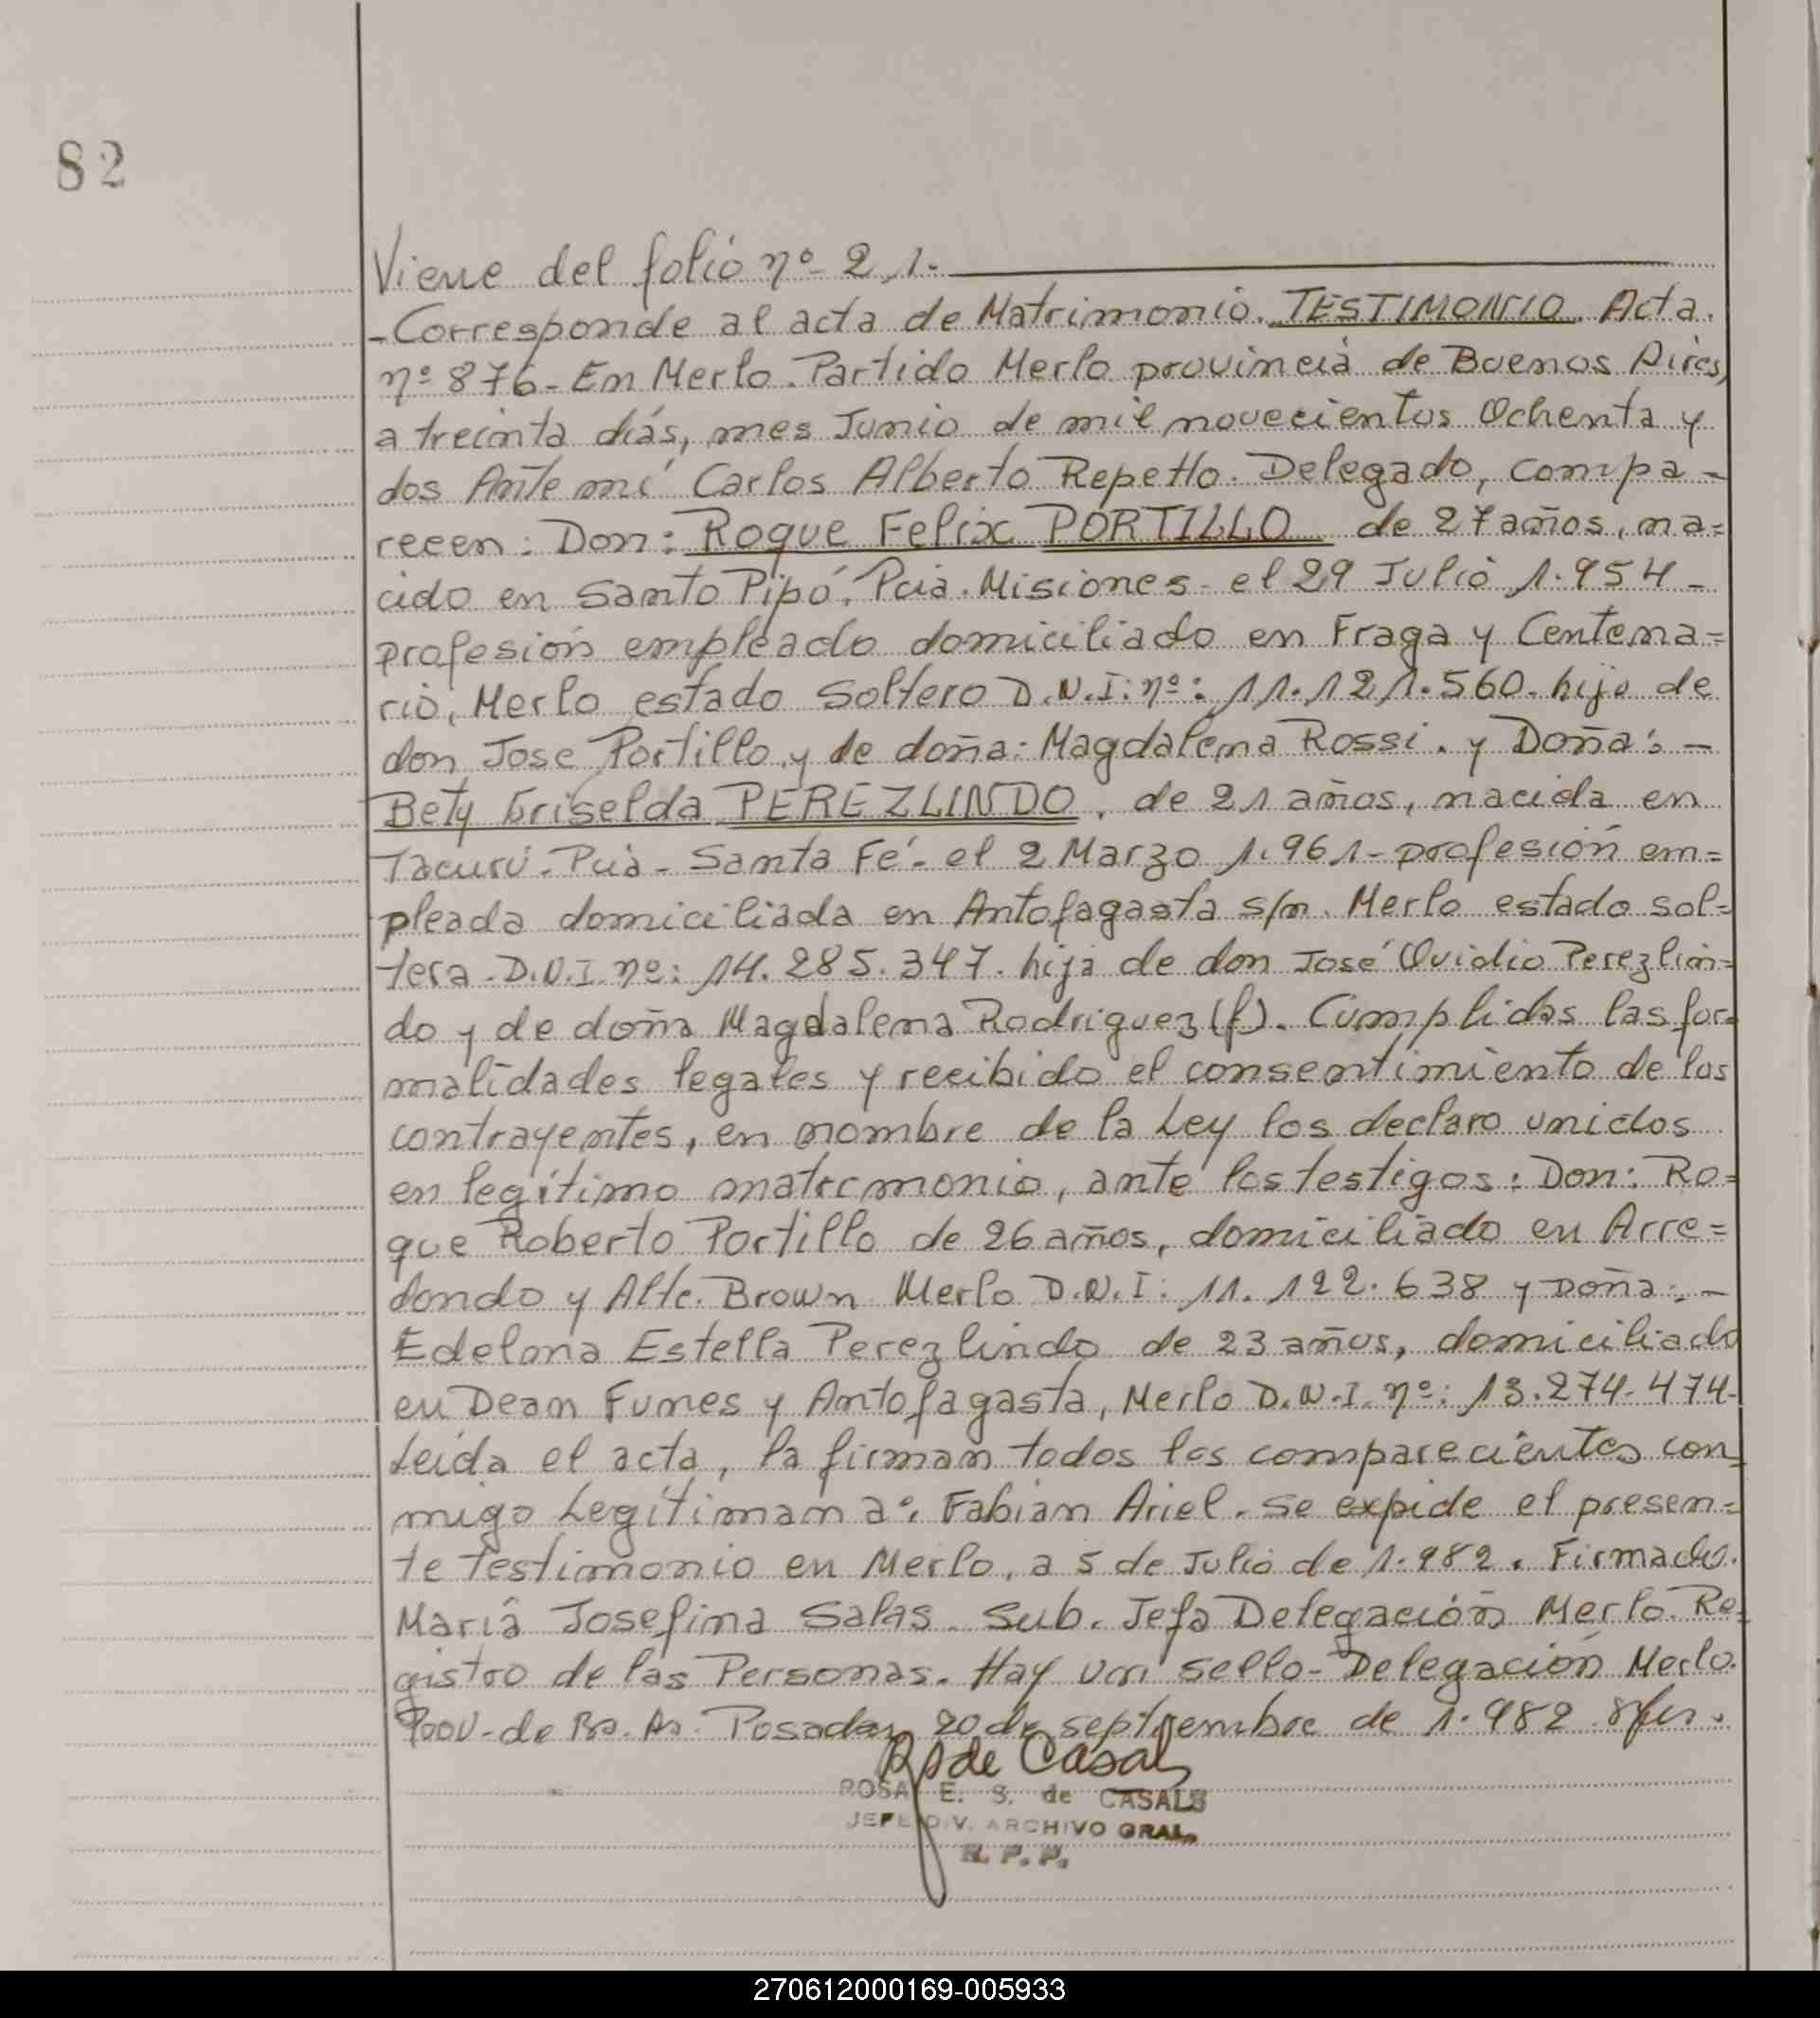 82
Viene del folio nº 21.
-Corresponde al acta de Matrimonio. TESTIMONIO. Acta.
nº 876- En Merlo. Partido Merlo provincia de Buenos Aires,
a treinta días, mes Junio de mil novecientos Ochenta y
dos Ante mí Carlos Alberto Repetto. Delegado, compa-
recen: Don: Roque Felix PORTILLO de 27 años, na=
cido en Santo Pipó, Pcia. Misiones - el 29 Julio 1.954-
profesión empleado domiciliado en Fraga y Centena=
rio, Merlo estado soltero D.N.I: nº: 11.121.560. hijo de
don Jose Portillo y de doña: Magdalena Rossi. y Doña: -
Bety Griselda PEREZLINDO, de 21 años, nacida en
Tacurú. Pcia - Santa Fé - el 2 Marzo 1.961 - profesión em=
pleada domiciliada en Antofagasta s/n. Merlo estado sol=
tera - D.N.I. nº: 14.285.347. hija de don José Ovidio Perezlin=
do y de doña Magdalena Rodriguez (f). Cumplidas las for=
malidades legales y recibido el consentimiento de los
contrayentes, en nombre de la Ley los declaro unidos
en legítimo matrimonio, ante los testigos: Don: Ro=
que Roberto Portillo de 26 años, domiciliado en Arre=
dondo y Alte. Brown Merlo D.N.I: 11.122.638 y Doña: -
Edelona Estella Perezlindo de 23 años, domiciliado
en Dean Funes y Antofagasta, Merlo D.N.I. nº: 13.274.474-
Leída el acta, la firman todos los comparecientes con=
migo Legitiman a: Fabian Ariel. Se expide el presen=
te testimonio en Merlo, a 5 de Julio de 1.982. Firmado.
María Josefina Salas. Sub. Jefa Delegación Merlo. Re=
gistro de las Personas. Hay un sello - Delegación Merlo.
Prov. de Bs. As. Posadas, 20 de septiembre de 1.982
R S de Casals
ROSA E. S. de CASALS
JEFE DIV. ARCHIVO GRAL.
R. P. P.
270612000169-005933